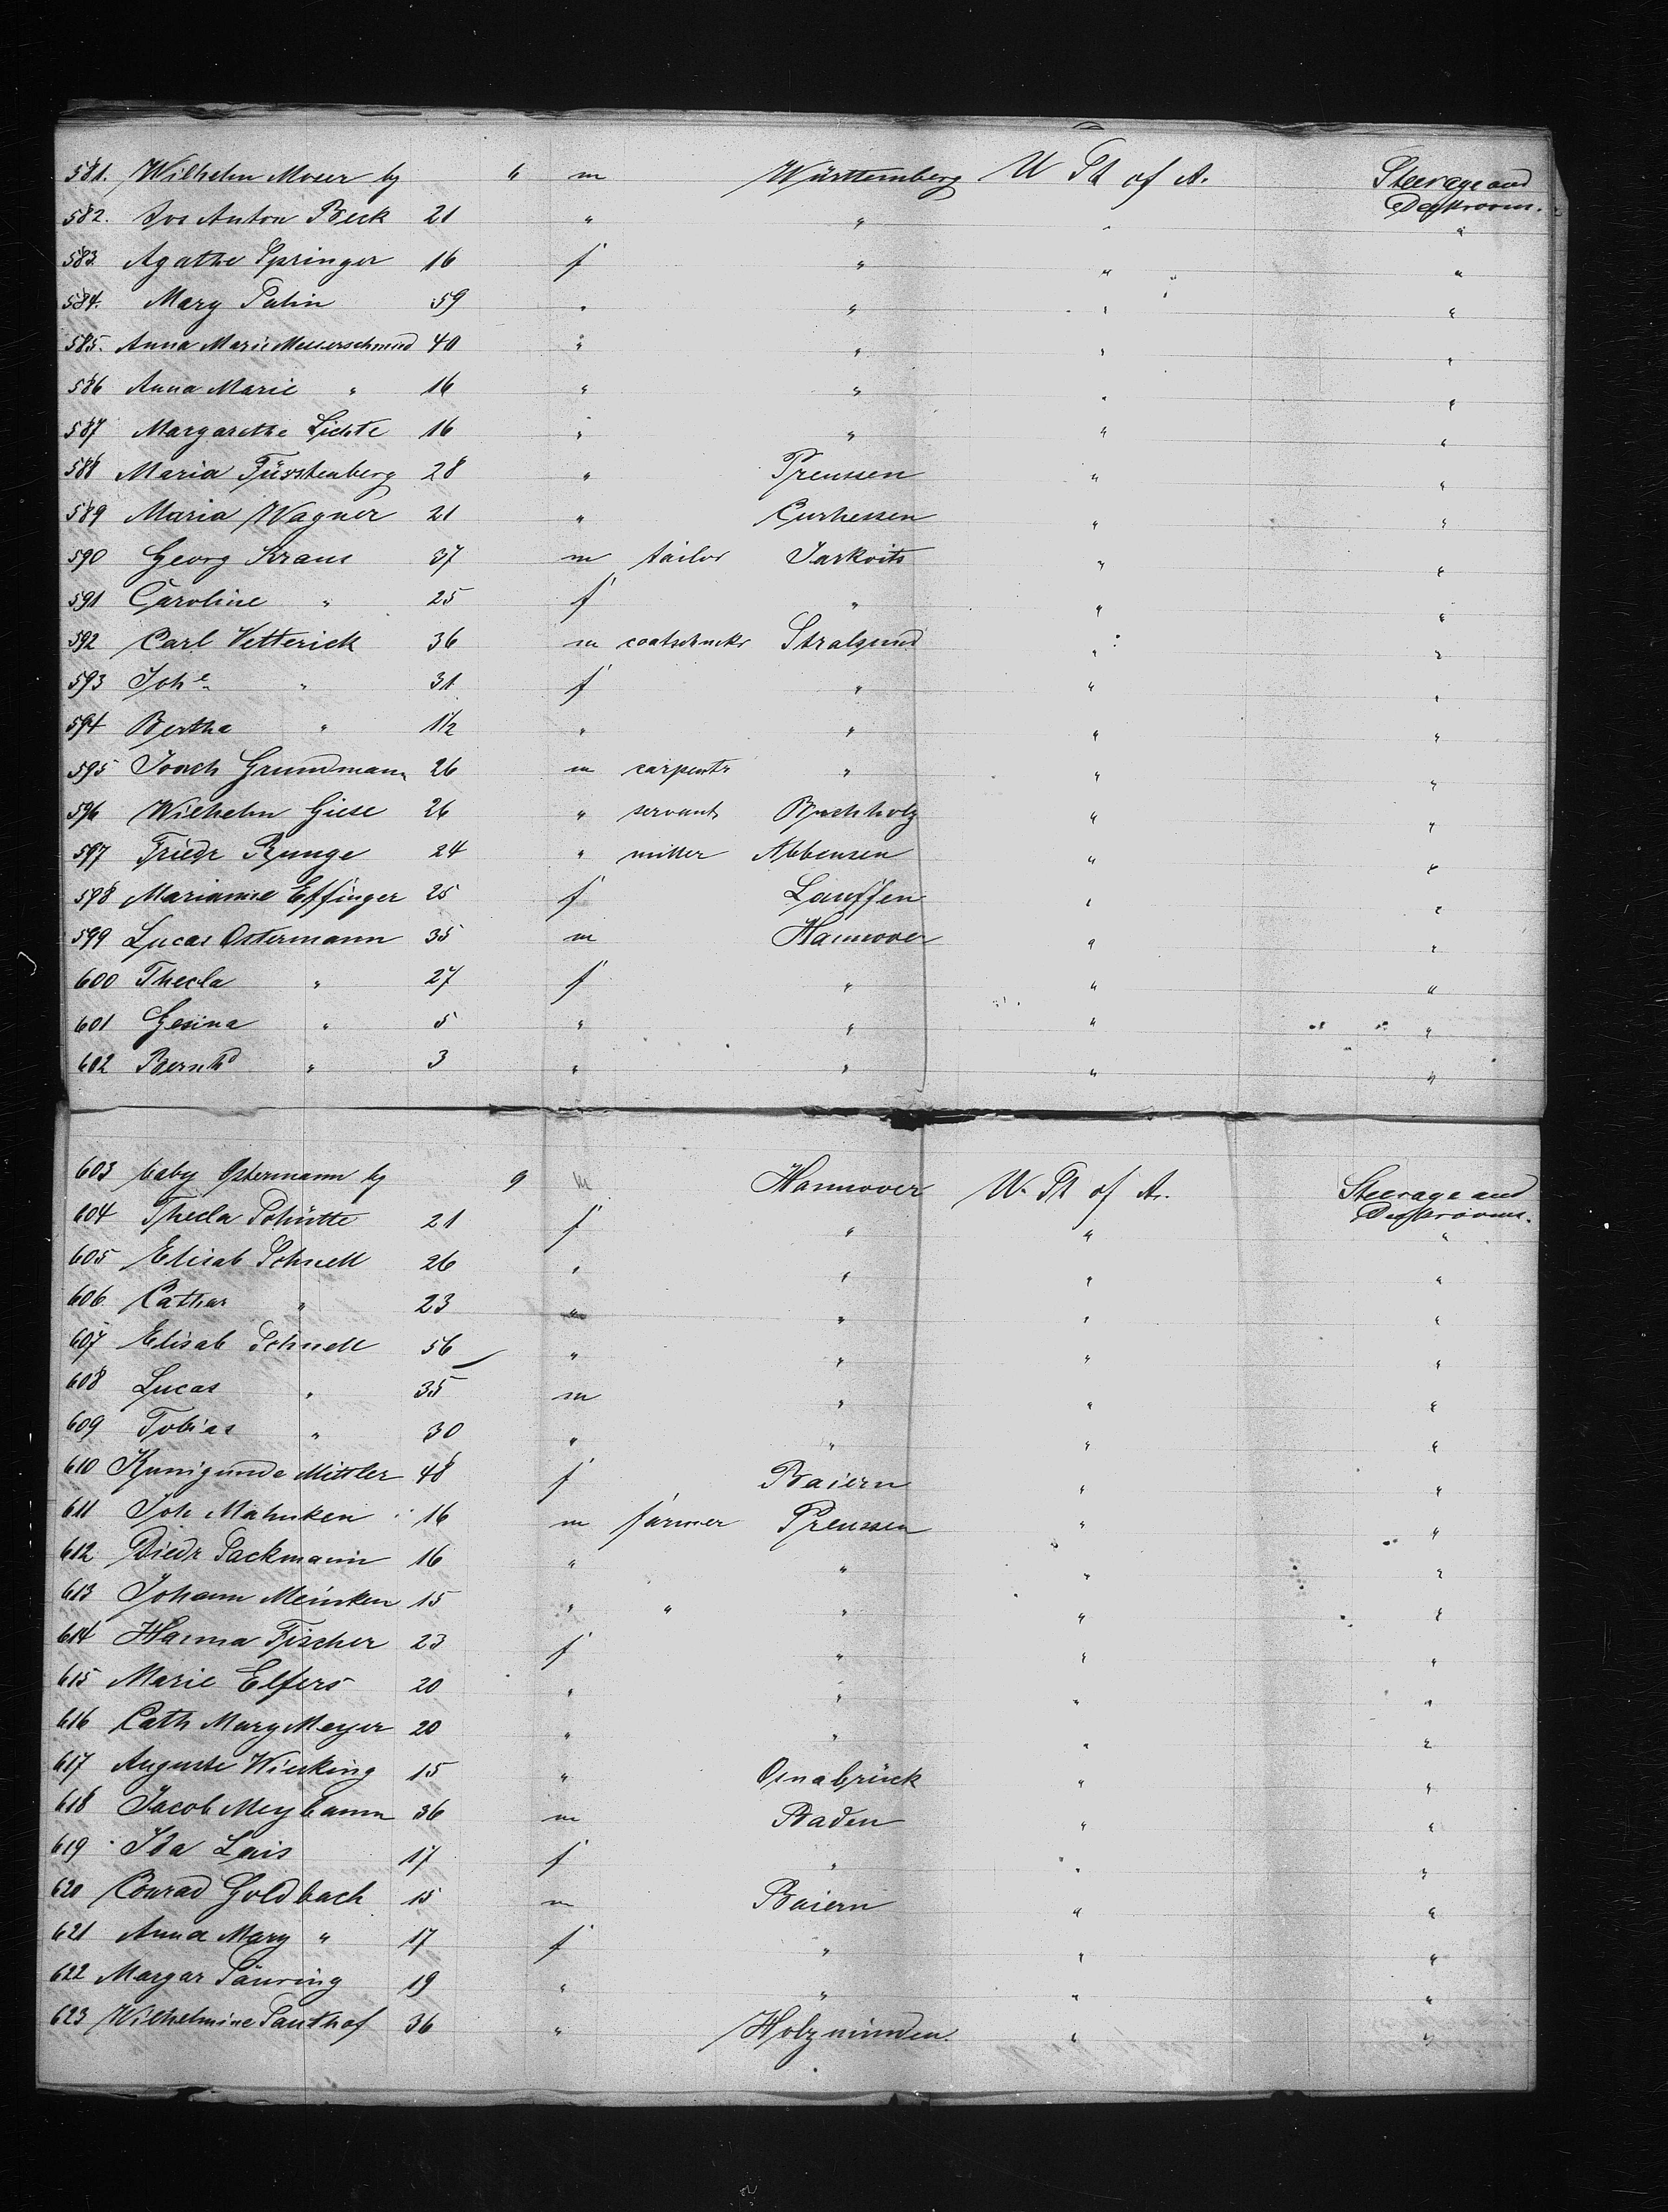 581. Wilhelm Moser by 6 m Württemberg U St of A. Steerage and
Deckrooms.
582. Jos Anton Beck 21 " " " "
583 Agathe Springer 16 f " " "
584. Mary Palin 59 " " " "
585. Anna Marie Messerschmid 40 " " " "
586 Anna Marie " 16 " " " "
587 Margarethe Lichte 16 " " " "
588 Maria Fürstenberg 28 " Preussen " "
589 Maria Wagner 21 " Curhessen " "
590 Georg Kraus 37 m tailor Jarkvits " "
591 Caroline " 25 f " " "
592 Carl Vetterick 36 m Stralsund " "
593 Joh e " 31 f " " "
594 Bertha " 1½ " " " "
595 Joach Grundmann 26 m carpentr " " "
596 Wilhelm Giese 26 " servant Buchholz " "
597 Friedr Runge 24 " miller Abbensen " "
598 Marianne Effinger 25 f Lauffen " "
599 Lucas Ostermann 35 m Hannover " "
600 Thecla " 27 f " " "
601 Gesina " 5 " " " "
602 Bernhd " 3 " " " "
603 baby Ostermann by 9 m Hannover U. St of A. Steerage and
Deckrooms.
604 Thecla Schütte 21 f " " "
605 Elisab Schnell 26 " " " "
606 Cathar " 23 " " " "
607 Elisab Schnell 56 " " " "
608 Lucas " 35 m " " "
609 Tobias " 30 " " " "
610 Kunigunde Mittler 48 f Baiern " "
611 Joh Mahnken 16 m farmer Preussen " "
612 Diedr Sackmann 16 " " " "
613 Johann Meinken 15 " " " " "
614 Hanna Fischer 23 f " " "
615 Marie Elfers 20 " " " "
616 Cath Marg Meyer 20 " " " "
617 Auguste Wieking 15 " Osnabrück " "
618 Jacob Meybaum 36 m Baden " "
619 Ida Lais 17 f " " "
620 Conrad Goldbach 15 m Baiern " "
621 Anna Mary " 17 f " " "
622 Margar Säuring 19 " " " "
623 Wilhelmine Santhof 36 " Holzminden. " "